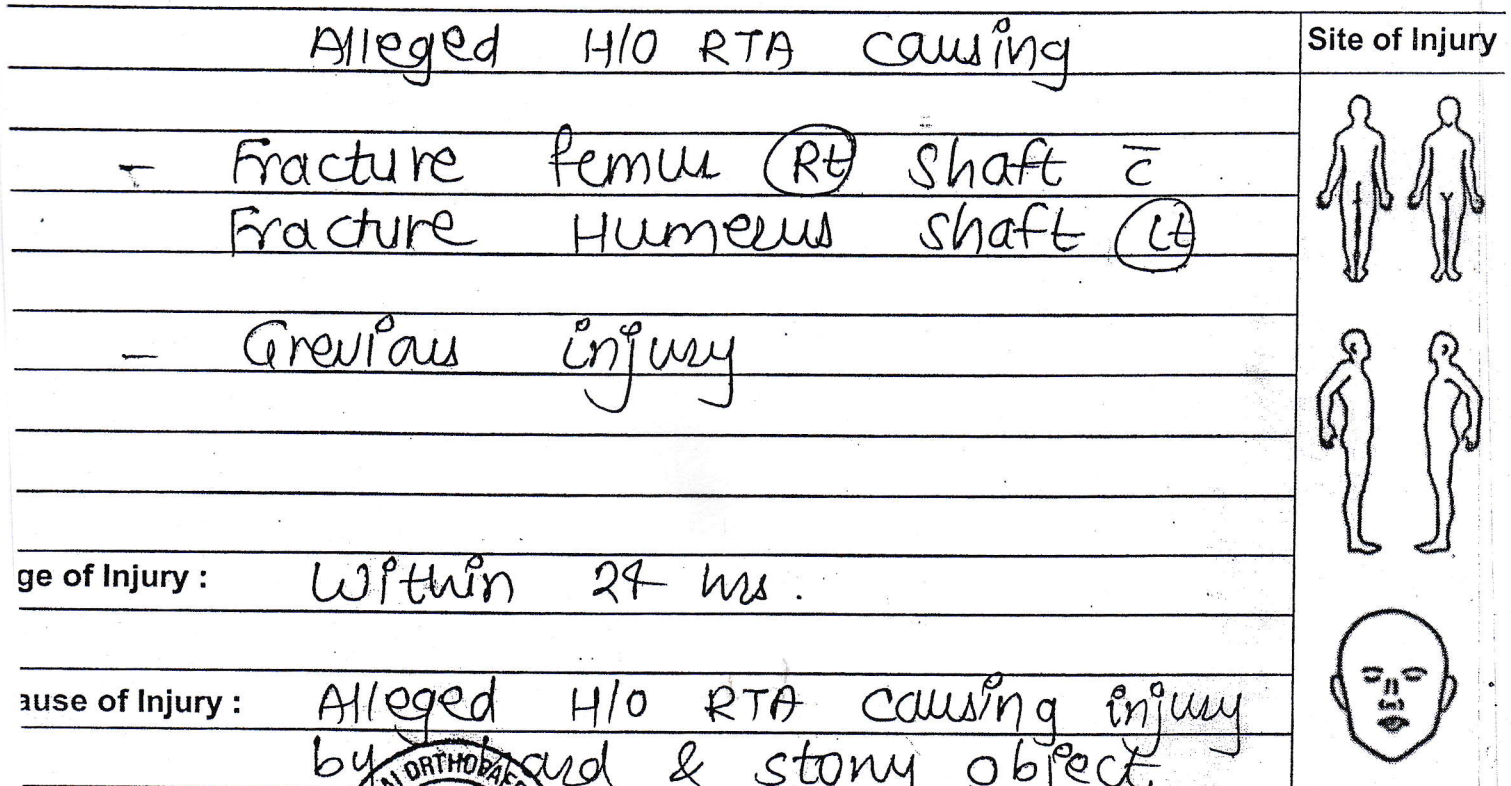 Alleged H/O RTA causing
Site of Injury
- Fracture femur Rt shaft c̅
Fracture Humerus shaft Lt
- Grevious injury
ge of Injury : Within 24 hrs.
ause of Injury : Alleged H/O RTA causing injury
by hard & stony object.
ORTHOPAE